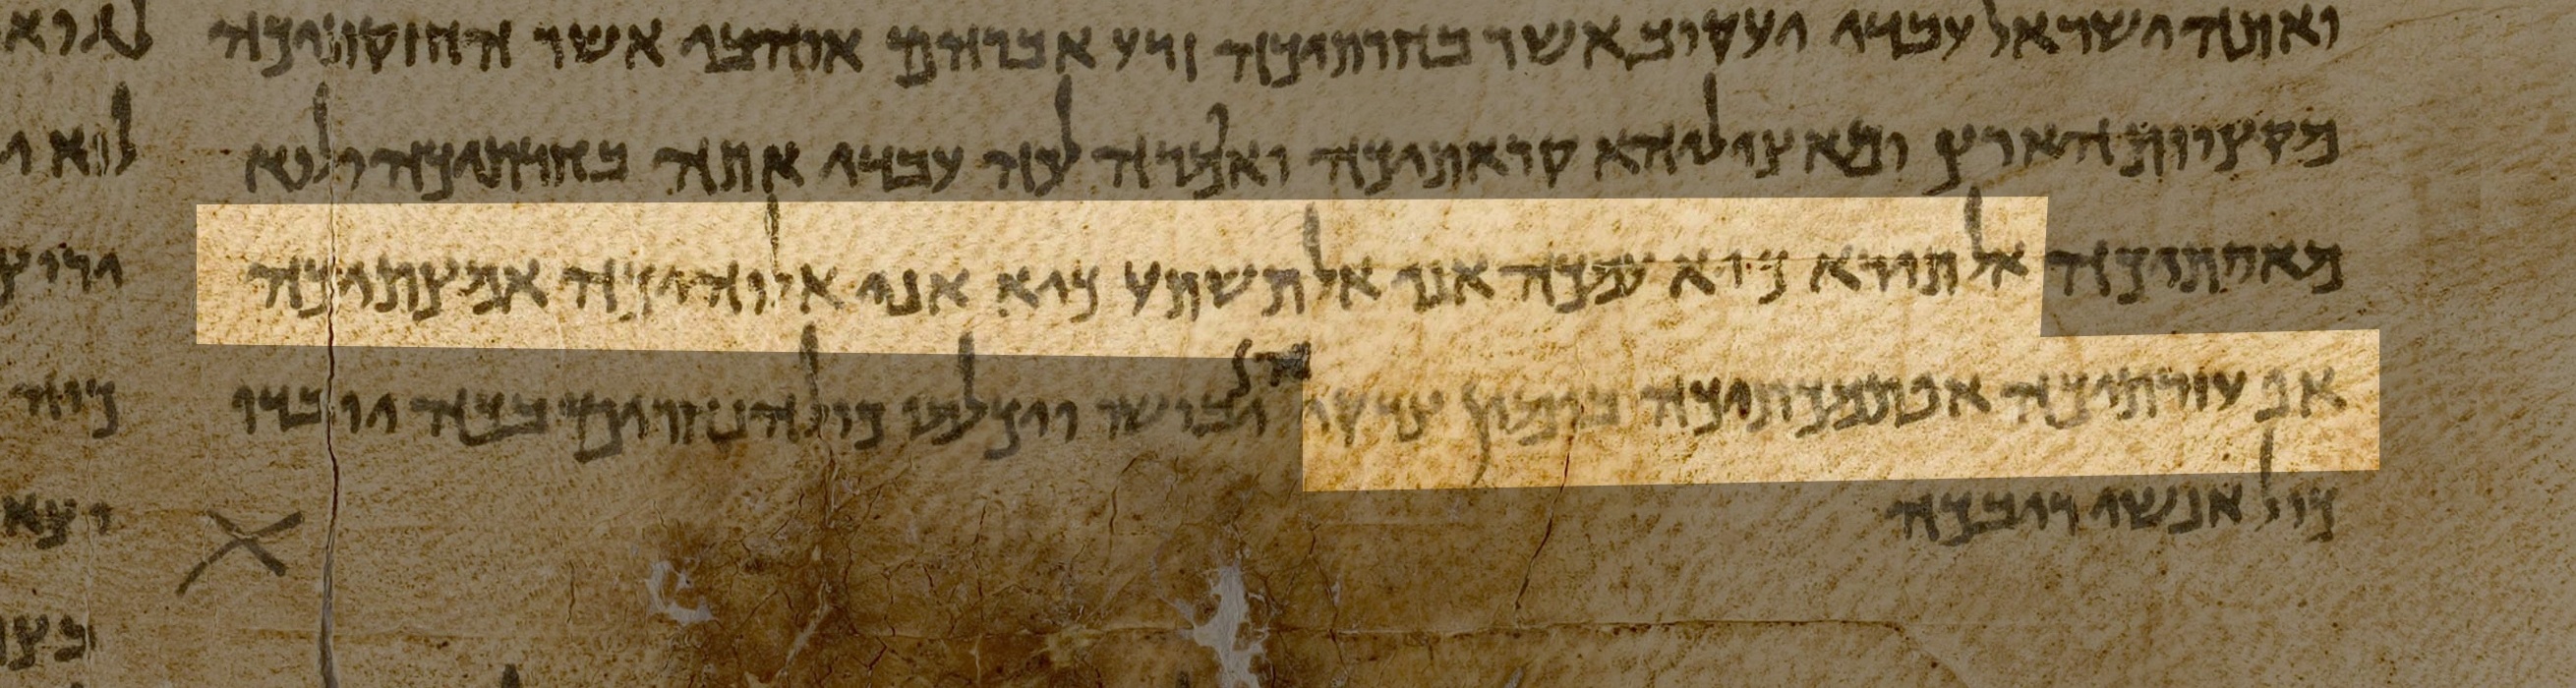 ואתה ישראל עבדי יעקוב אשר בחרתיכה זרע אברהם אוהבי אשר החזקתיכה
מקצוות הארץ ומאציליהא קראתיכה ואמרה לכה עבדי אתה בחרתיכה ולוא
מאסתיכה אל תירא כיא עמכה אני אל תשתע כיא אני אלוהיכה אמצתיכה
אפ עזרתיכה אפ תמכתיכה בימין צדקי הן יבושו ויכלמו כול הנחרים בכה יובדו
כול אנשי ריבכה